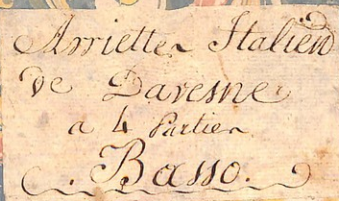 Arriette Italien
de Davesne
a 4 Partie
Basso.